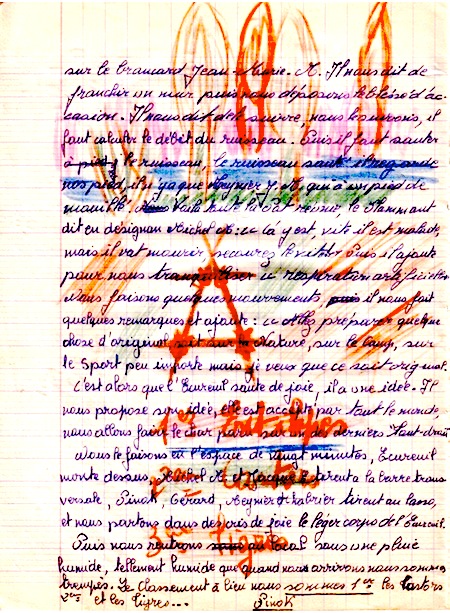 sur le brancard Jean-Marie. M. Il nous dit de
franchir un mur puis nous déposons le blessé d'oc-
casion. Il nous dit de le suivre, nous le suivons, il
faut calculer le débit du ruisseau. Puis il faut sauter
à pied, le ruisseau, le ruisseau sauté il regarde
nos pied, il y a que Meynier J. M. qui a un pied de
mouillé, toute la Pat réunie, le Flammant
dit en désignan Michel M: "la y est, vite il est malade,
mais il vat mourir, secourez le vite" Puis il ajoute
pour nous tranquiliser "respiration artificielle"
Nous faisons quelques mouvements, puis il nous fait
quelques remarques et ajoute: "Allez préparer quelque
chose d'original soit sur la Nature, sur le camp, sur
le Sport peu importe mais je veux que ce soit original.
C'est alors que l'Eureuil saute de joie, il a une idée. Il
nous propose son idée, elle est accepté par tout le monde,
nous allons faire le char paru sur un des derniers
Nous le faisons en l'espace de vingt minutes, Ecureuil
monte dessus, Michel M. et Jacques tirent a la barre trans
versale, Pinok, Gérard, Meynier tirent au lasso,
et nous partons dans des joie le léger corps de l'Eureuil.
Puis nous rentrons au local sous une pluie
humide, tellement humide que quand nous arrivons nous sommes
trempés. Le Classement à lieu nous sommes 1er les Castors
2em et les tigres...
Pinok
1er
2em
3em Tigres